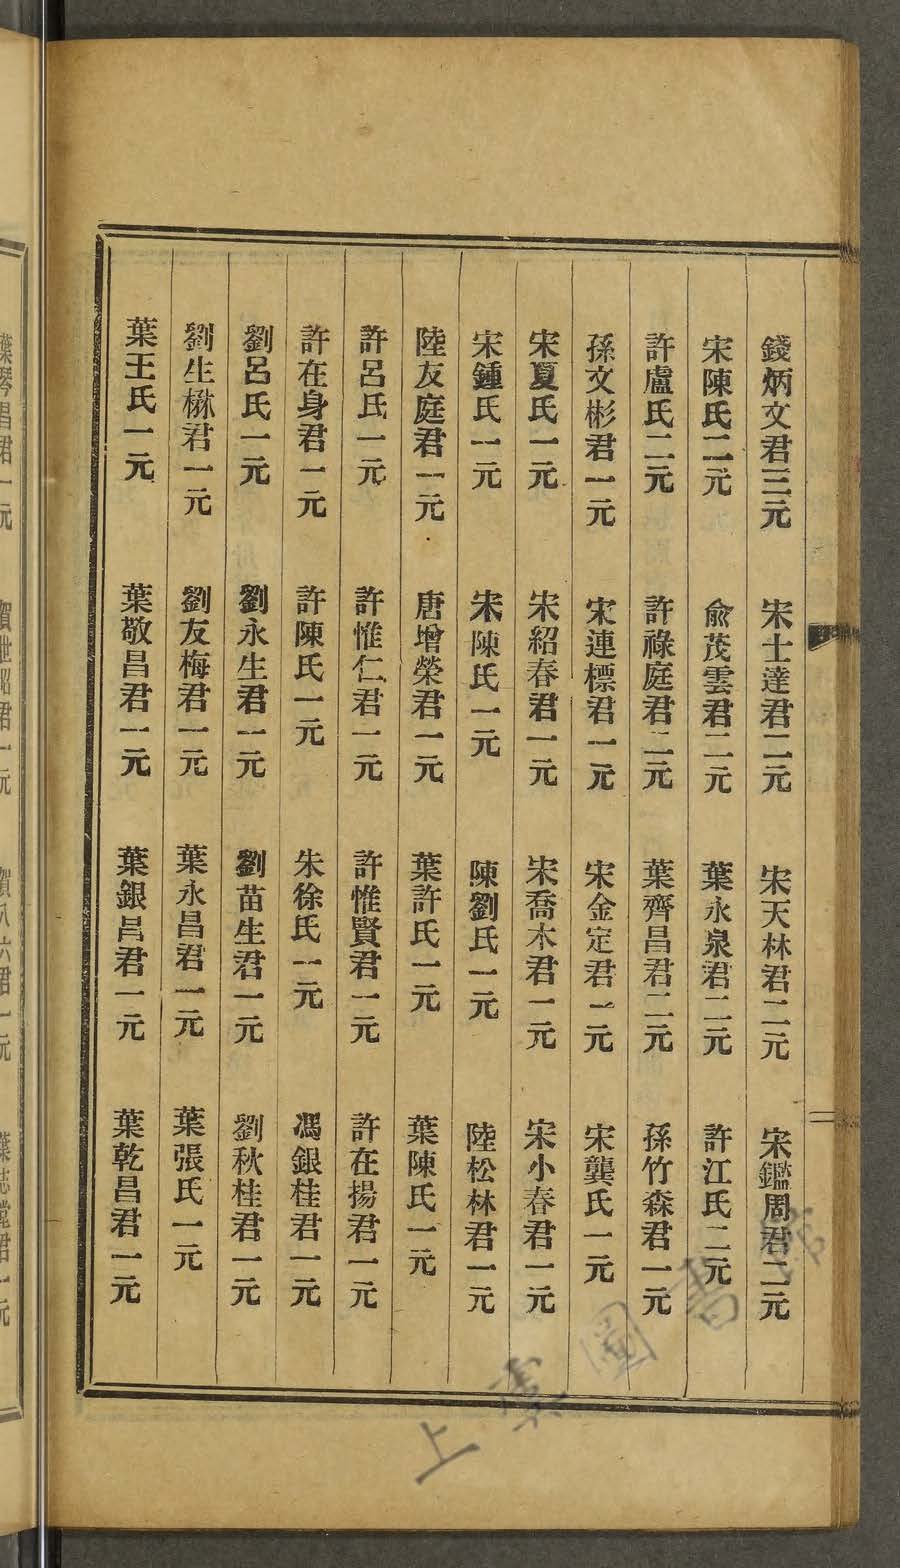 錢炳文君三元　宋士達君二元　宋天林君二元　宋鑑周君二元
宋陳氏二元　俞茂雲君二元　葉永泉君二元　許江氏二元
許盧氏二元　許祿庭君二元　葉齊昌君二元　孫竹森君一元
孫文彬君一元　宋連標君一元　宋金定君一元　宋龔氏一元
宋夏氏一元　宋紹春君一元　宋喬木君一元　宋小春君一元
宋鍾氏一元　宋陳氏一元　陳劉氏一元　陸松林君一元
陸友庭君一元　唐增榮君一元　葉許氏一元　葉陳氏一元
許呂氏一元　許惟仁君一元　許惟賢君一元　許在揚君一元
許在身君一元　許陳氏一元　朱徐氏一元　馮銀桂君一元
劉呂氏一元　劉永生君一元　劉苗生君一元　劉秋桂君一元
劉生楙君一元　劉友梅君一元　葉永昌君一元　葉張氏一元
葉王氏一元　葉敬昌君一元　葉銀昌君一元　葉乾昌君一元
葉琴昌君一元　賀世昭君一元　賀八六君一元　葉志堂君一元
上虞圖書館